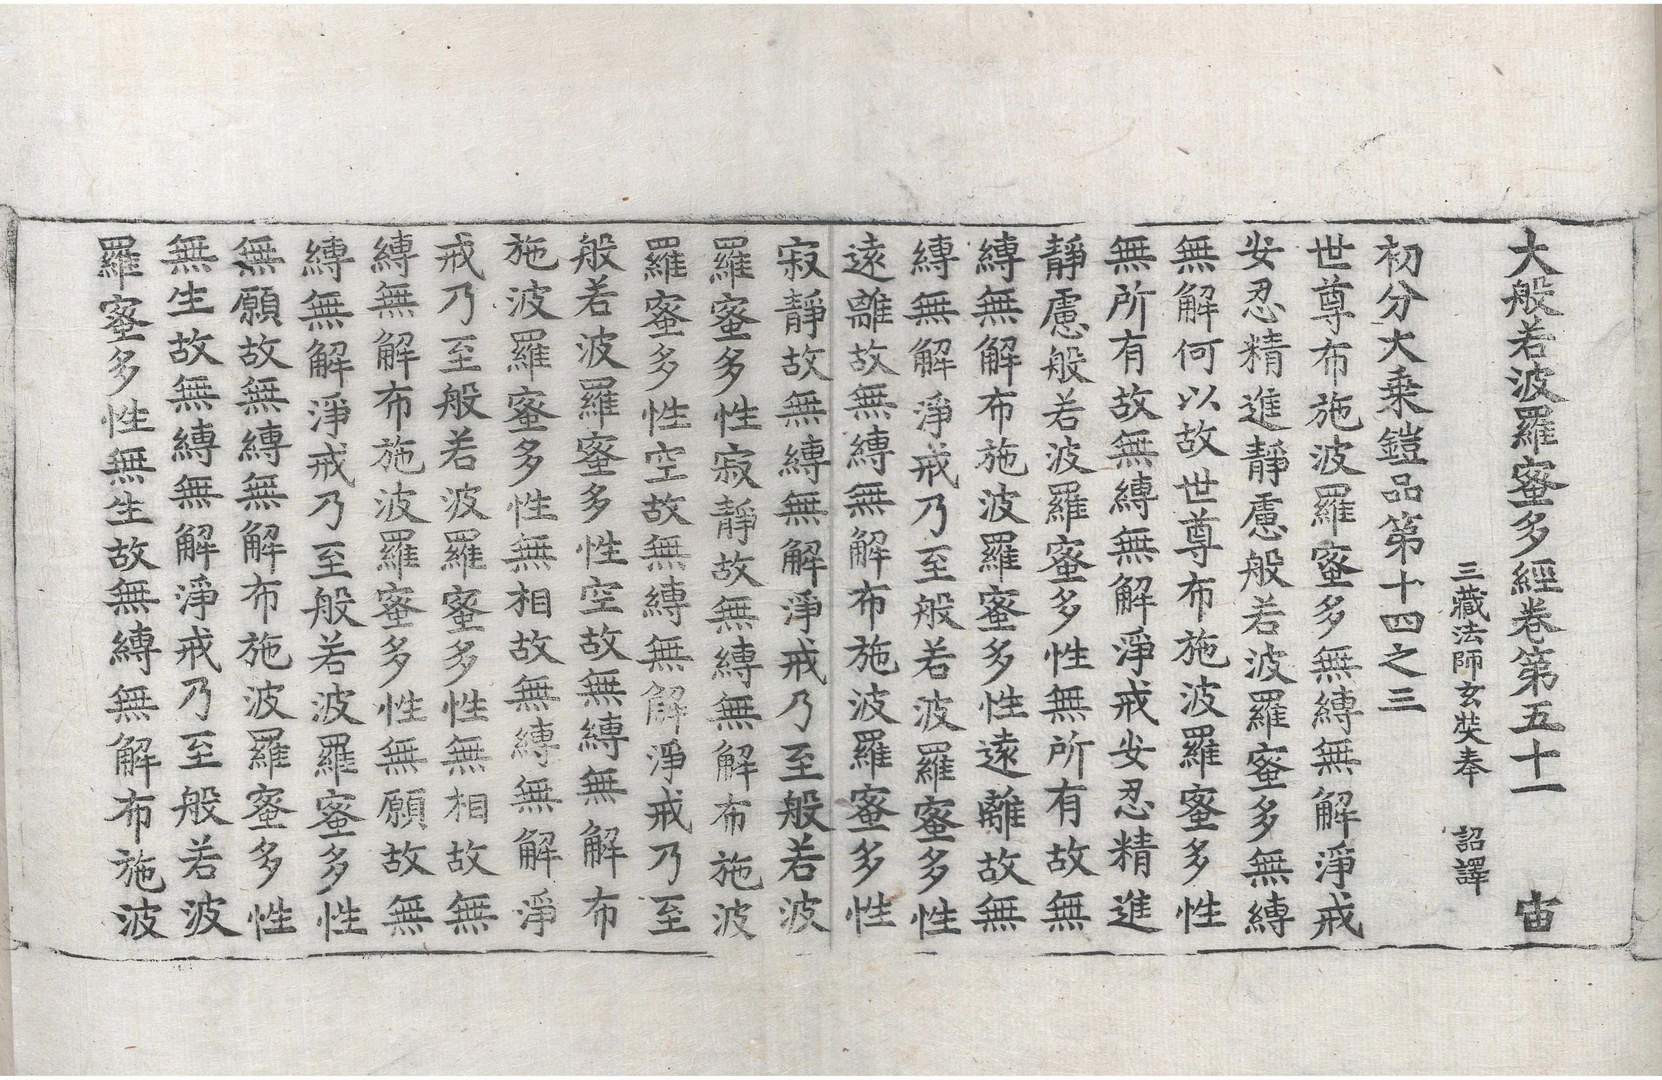 大般若波羅蜜多經卷第五十一 宙
三藏法師玄奘奉 詔譯
初分大乘鎧品第十四之三
世尊布施波羅蜜多無縛無解淨戒
安忍精進靜慮般若波羅蜜多無縛
無解何以故世尊布施波羅蜜多性
無所有故無縛無解淨戒安忍精進
靜慮般若波羅蜜多性無所有故無
縛無解布施波羅蜜多性遠離故無
縛無解淨戒乃至般若波羅蜜多性
遠離故無縛無解布施波羅蜜多性
寂靜故無縛無解淨戒乃至般若波
羅蜜多性寂靜故無縛無解布施波
羅蜜多性空故無縛無解淨戒乃至
般若波羅蜜多性空故無縛無解布
施波羅蜜多性無相故無縛無解淨
戒乃至般若波羅蜜多性無相故無
縛無解布施波羅蜜多性無願故無
縛無解淨戒乃至般若波羅蜜多性
無願故無縛無解布施波羅蜜多性
無生故無縛無解淨戒乃至般若波
羅蜜多性無生故無縛無解布施波